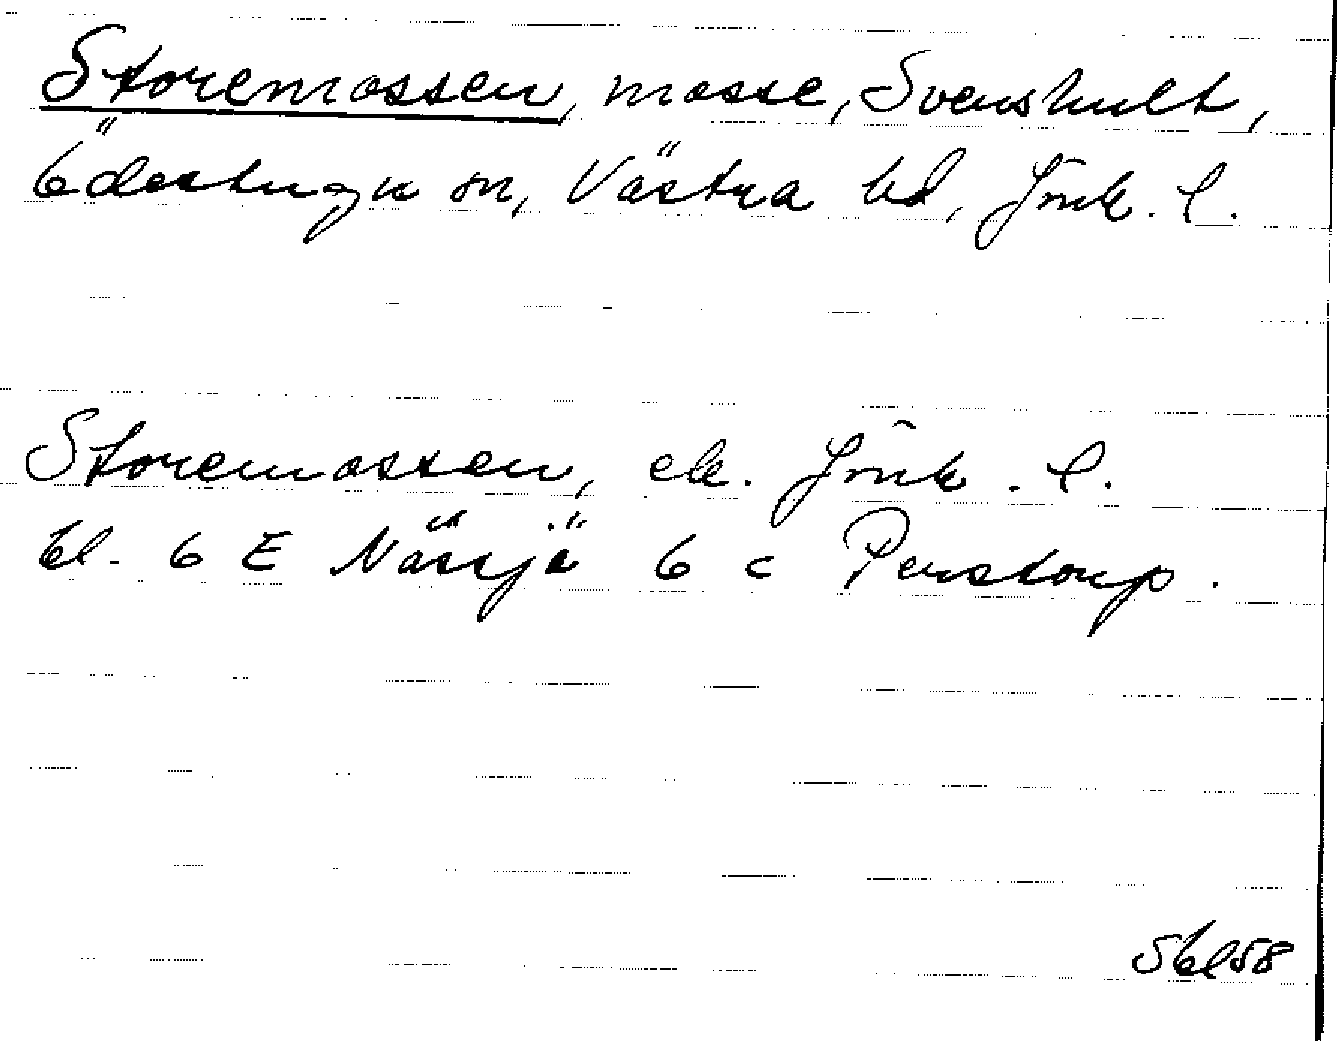 Storemossen, mosse, Svenshult,
Bäckstugu sn, Västra hd, Jönk. l.
Storemossen, ek. Jönk. l.
bl. 6 E Nässjö 6 c Perstorp.
Sbl58